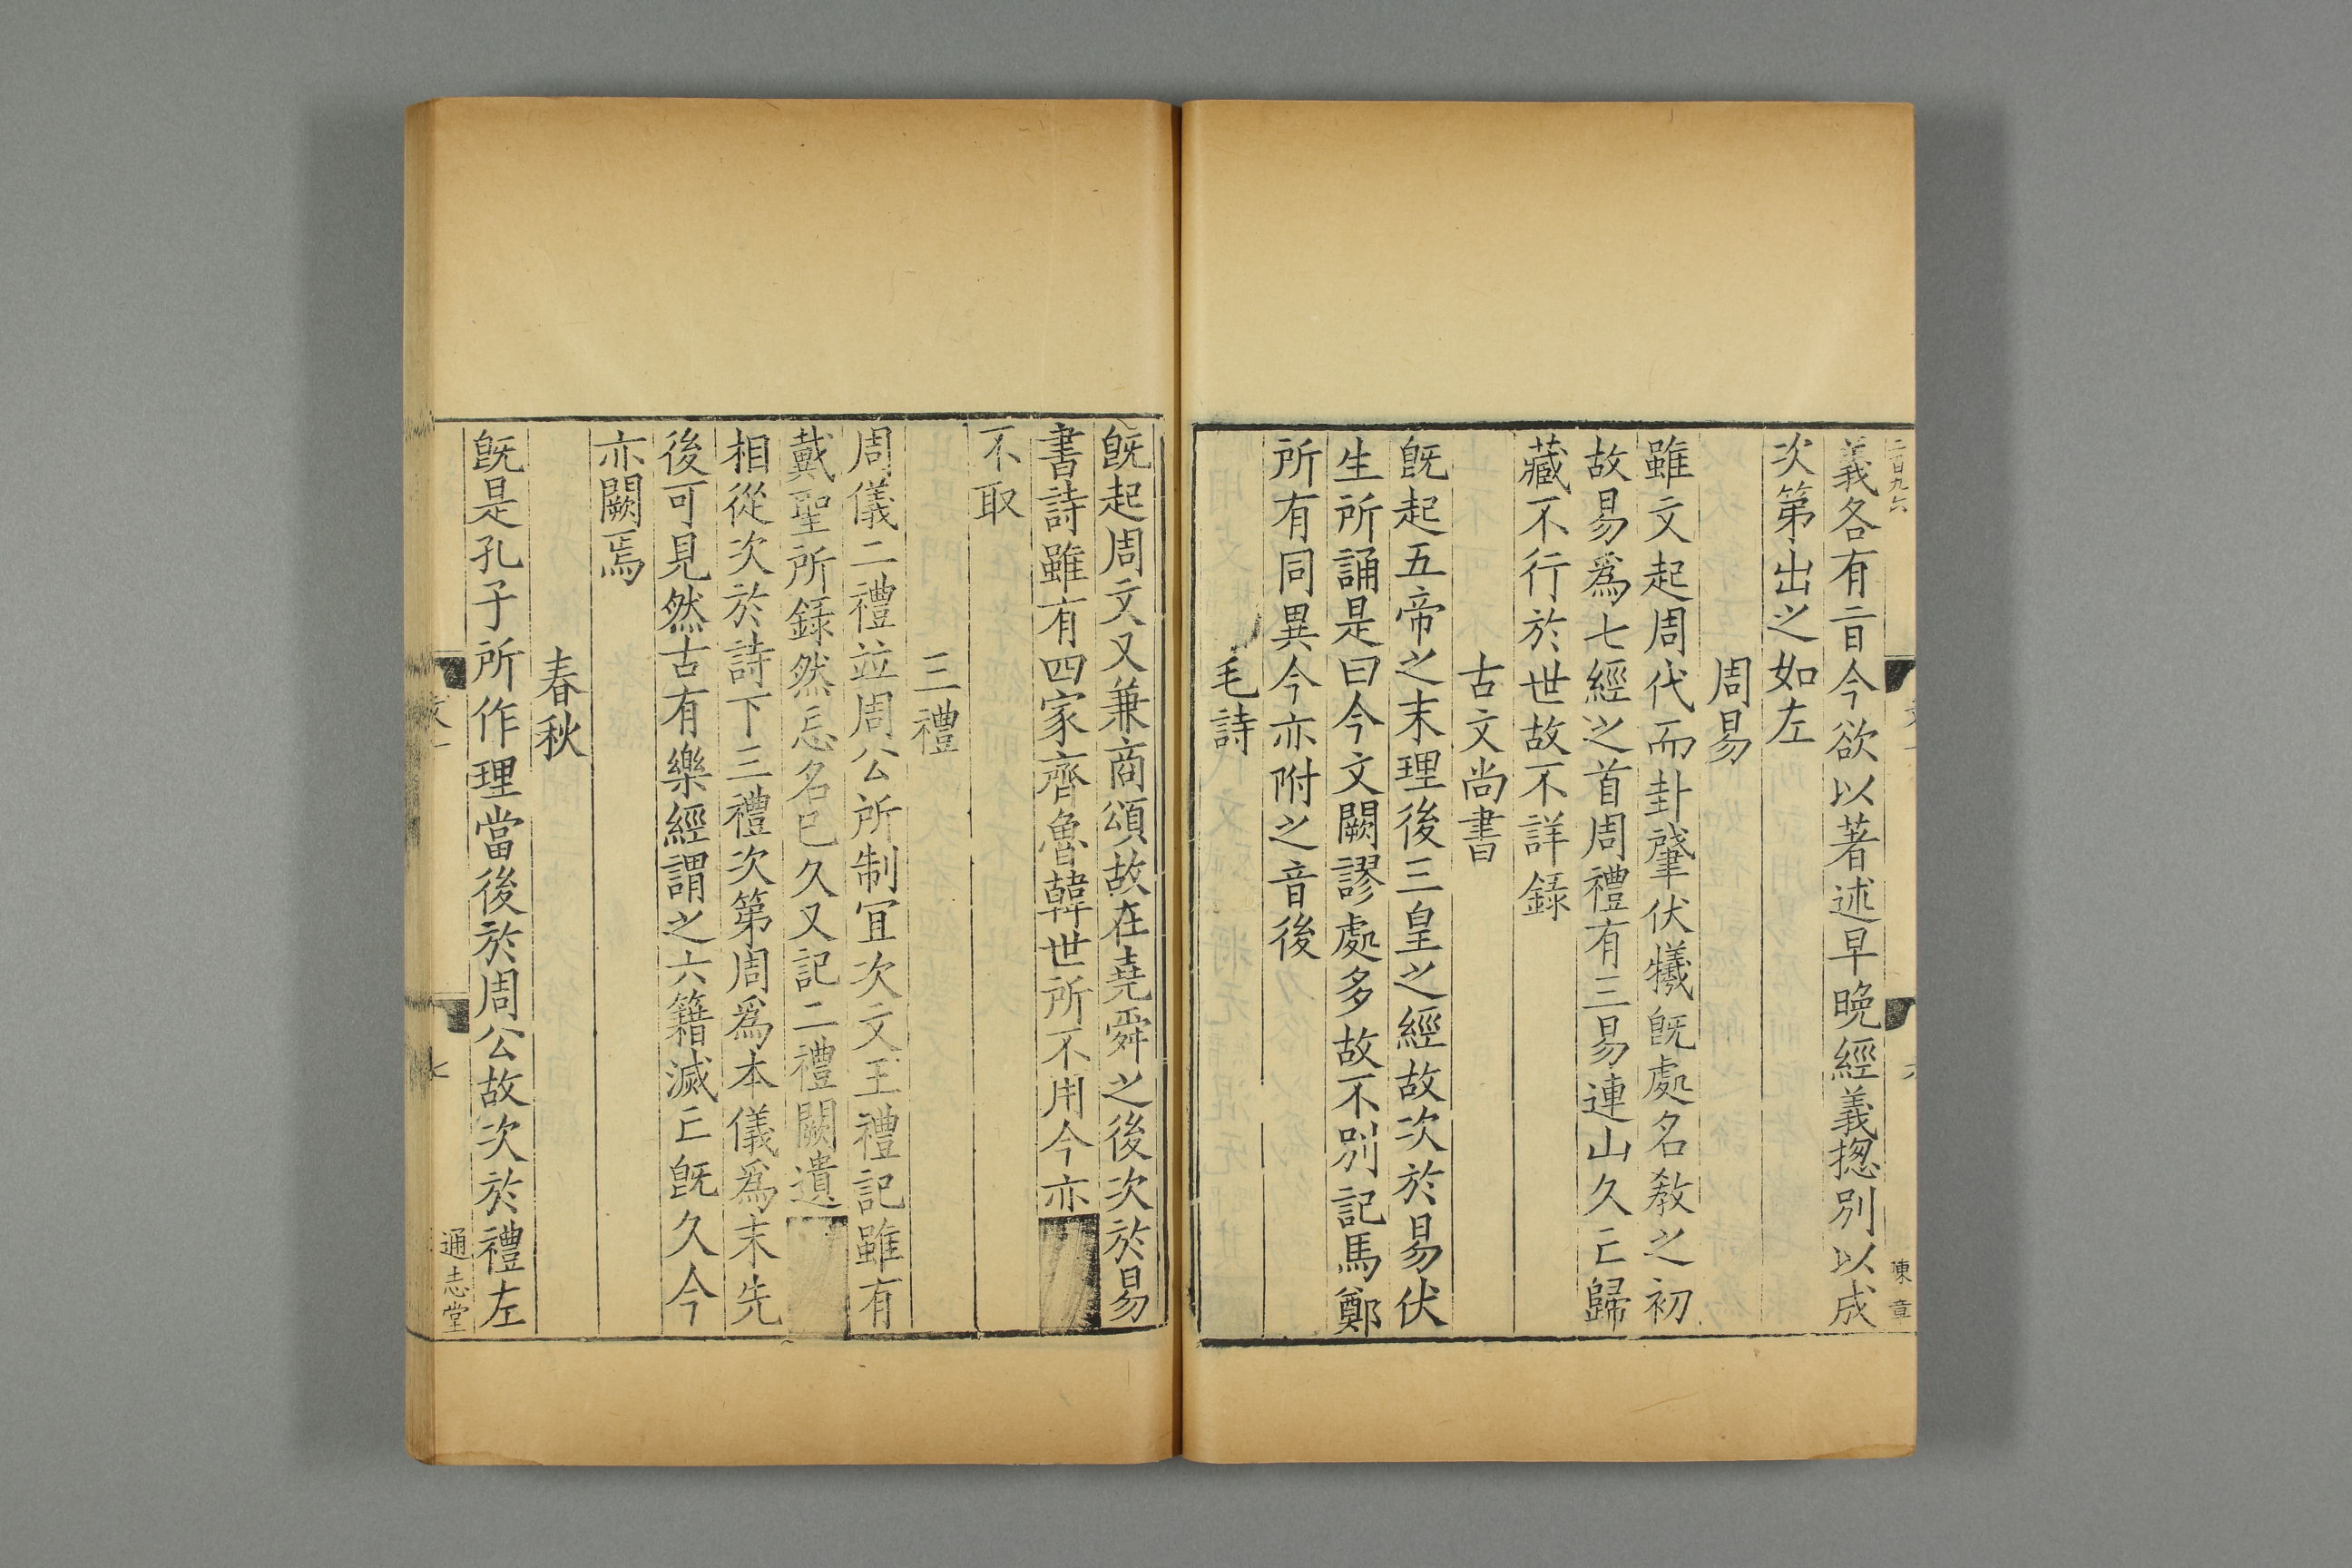 二百九六
陳章
義各有㫖今欲以著述早晚經義揔別以成
次第出之如左
周易
雖文起周代而卦肇伏犧既處名敎之初
故易爲七經之首周禮有三易連山久亡歸
藏不行於世故不詳録
古文尚書
既起五帝之末理後三皇之經故次於易伏
生所誦是曰今文闕謬處多故不別記馬鄭
所有同異今亦附之音後
毛詩
既起周文又兼商頌故在堯舜之後次於易
書詩雖有四家齊魯韓世所不用今亦
不取
三禮
周儀二禮並周公所制宜次文王禮記雖有
戴聖所録然忘名已久又記二禮闕遺
相從次於詩下三禮次第周爲本儀爲末先
後可見然古有樂經謂之六籍滅亡既久今
亦闕焉
春秋
既是孔子所作理當後於周公故次於禮左
通志堂